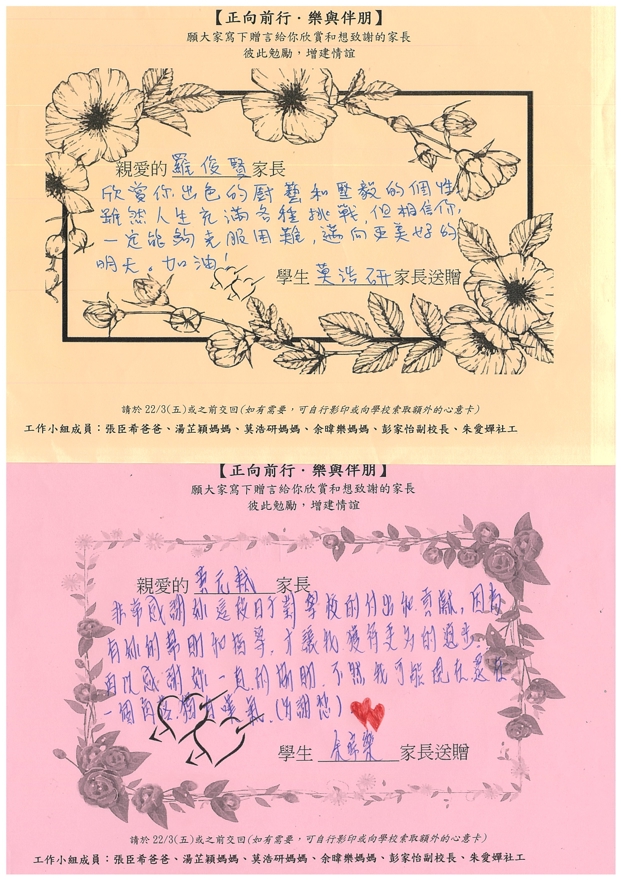 【正向前行．樂與伴朋】
願大家寫下贈言給你欣賞和想致謝的家長
彼此勉勵，增建情誼
親愛的 羅俊賢 家長
欣賞你出色的廚藝和堅毅的個性,
雖然人生充滿各種挑戰,但相信你,
一定能夠克服困難,邁向更美好的
明天。加油!
學生 莫浩研 家長送贈
請於 22/3(五)或之前交回(如有需要，可自行影印或向學校索取額外的心意卡)
工作小組成員：張臣希爸爸、湯芷穎媽媽、莫浩研媽媽、余暐樂媽媽、彭家怡副校長、朱愛嬋社工
【正向前行．樂與伴朋】
願大家寫下贈言給你欣賞和想致謝的家長
彼此勉勵，增建情誼
親愛的 家長
非常感謝妳這段日子對學校的付出和貢獻,因為
有妳的幫助和指導,才讓我獲得更多的進步.
所以感謝妳一直的協助.不然我可能現在還在
一個角落
學生 家長送贈
請於 22/3(五)或之前交回(如有需要，可自行影印或向學校索取額外的心意卡)
工作小組成員：張臣希爸爸、湯芷穎媽媽、莫浩研媽媽、余暐樂媽媽、彭家怡副校長、朱愛嬋社工